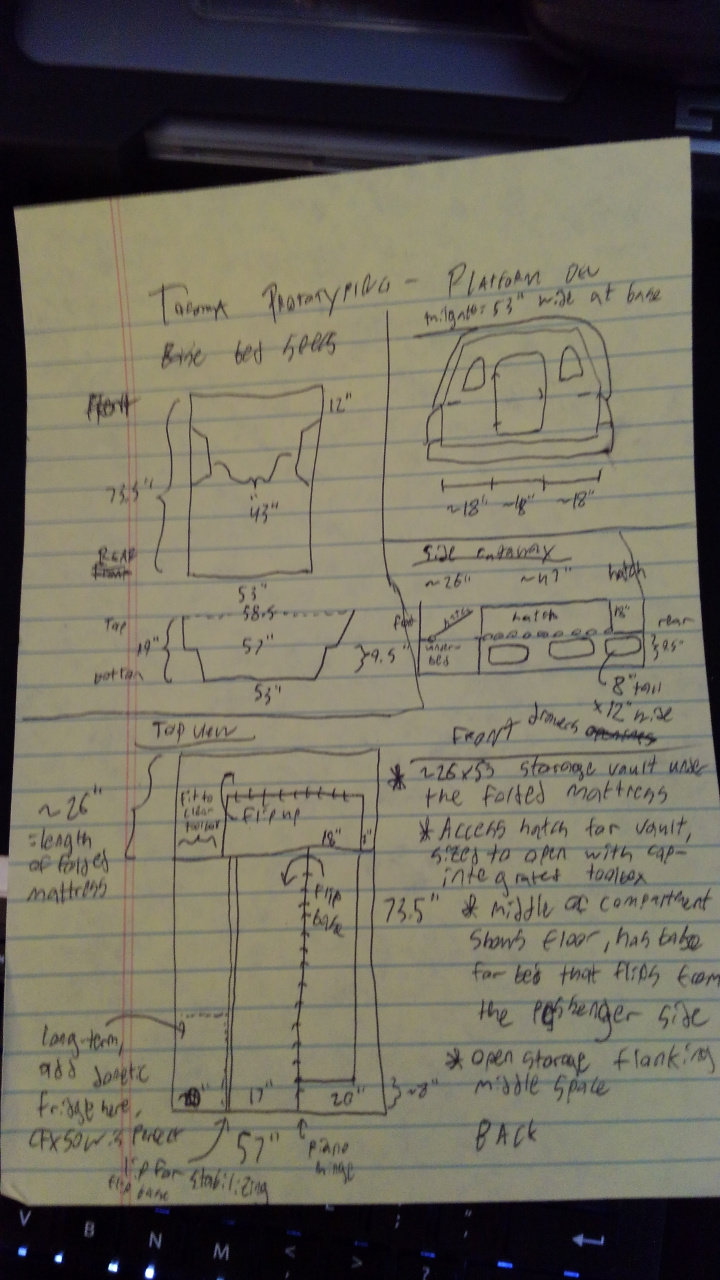 Tacoma Prototyping - Platform
Base bed specs
53" wide at base
12"
73.5"
43"
REAR
53"
~18" ~18" ~18"
side cutaway
~26" ~47" hatch
58.5
Top
19" 57" 9.5"
bottom
53"
hatch hatch 18" rear
under-
bed
9.5"
8" tall
x 12" wide
Top view
Front
drivers
~26"
=length
of folded
mattress
fit to
clear
toolbox
flip up
18"
flip
base
73.5"
* ~26x53 storage vault under
the folded mattress
* Access hatch for vault,
sized to open with cap-
integrated toolbox
* middle of compartment
shows floor, has base
for bed that flips from
the passenger side
* open storage flanking
middle space
BACK
long-term,
add dometic
fridge here,
CFX50W is perfect
17" 20" ~8"
57"
piano
hinge
lip for stabilizing
flip base
V B N M < > ?